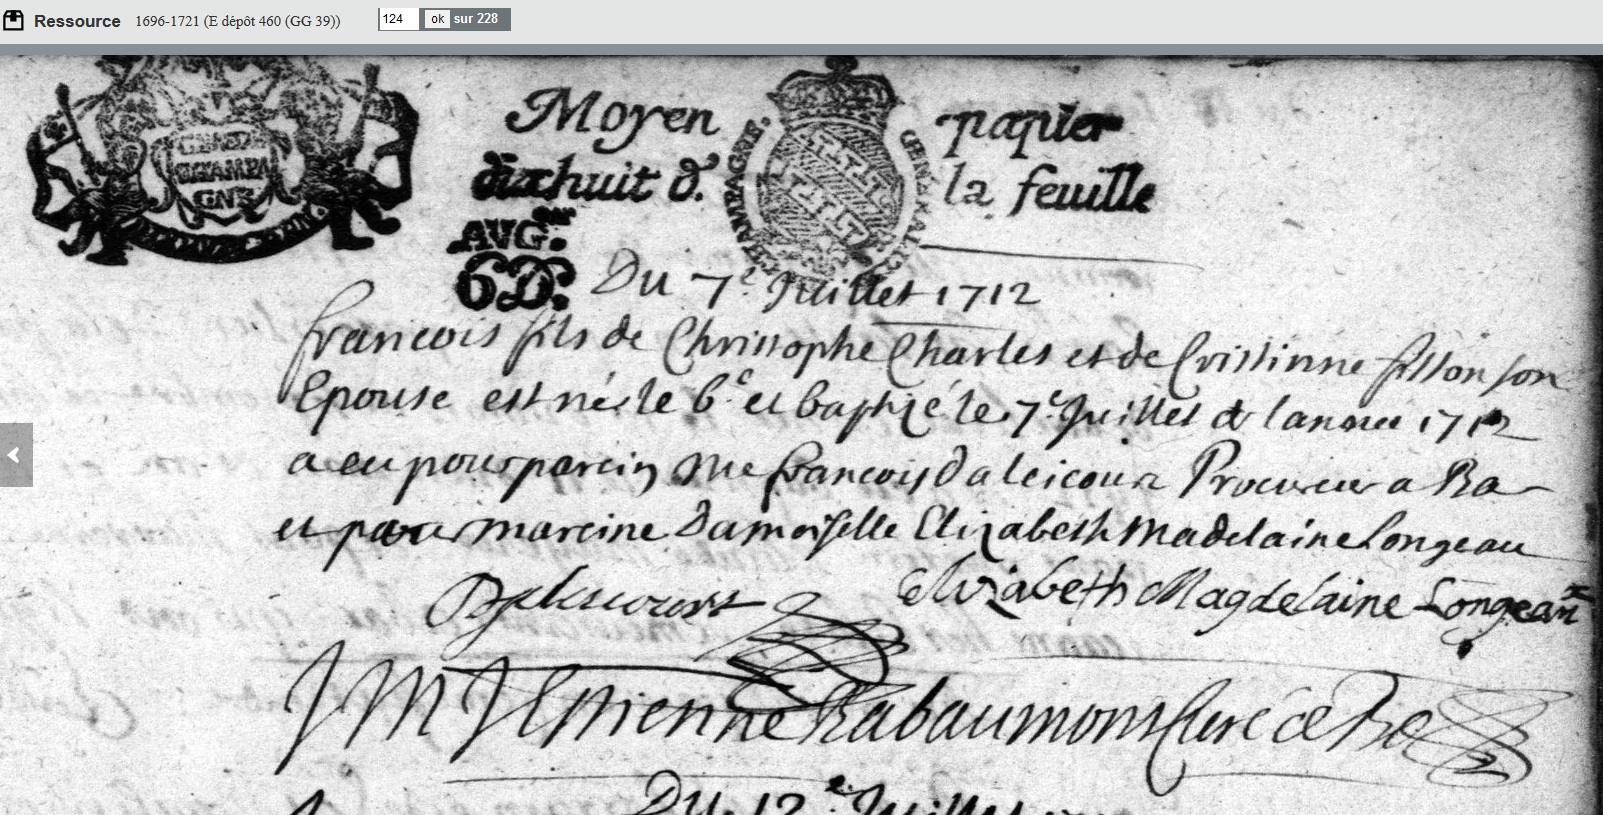 Ressource 1696-1721 (E dépôt 460 (GG 39)) 124 ok sur 228
Moyen papier
dixhuit d. la feuille
CHAMPAGNE
AUG.on
6D.
Du 7e Juillet 1712
francois fils de Christophe Charles et de Cristinne fillon son
Epouse est né le 6e et baptizé le 7e Juillet de lannee 1712
a eu pour parein Me francois Daleicour Procureur a Ba
et pour mareine Damoiselle Elizabeth Madelaine Longeau
Elizabeth Magdelaine Longeau
J M J Etienne Rabaumont Curé de
Du 12e Juillet